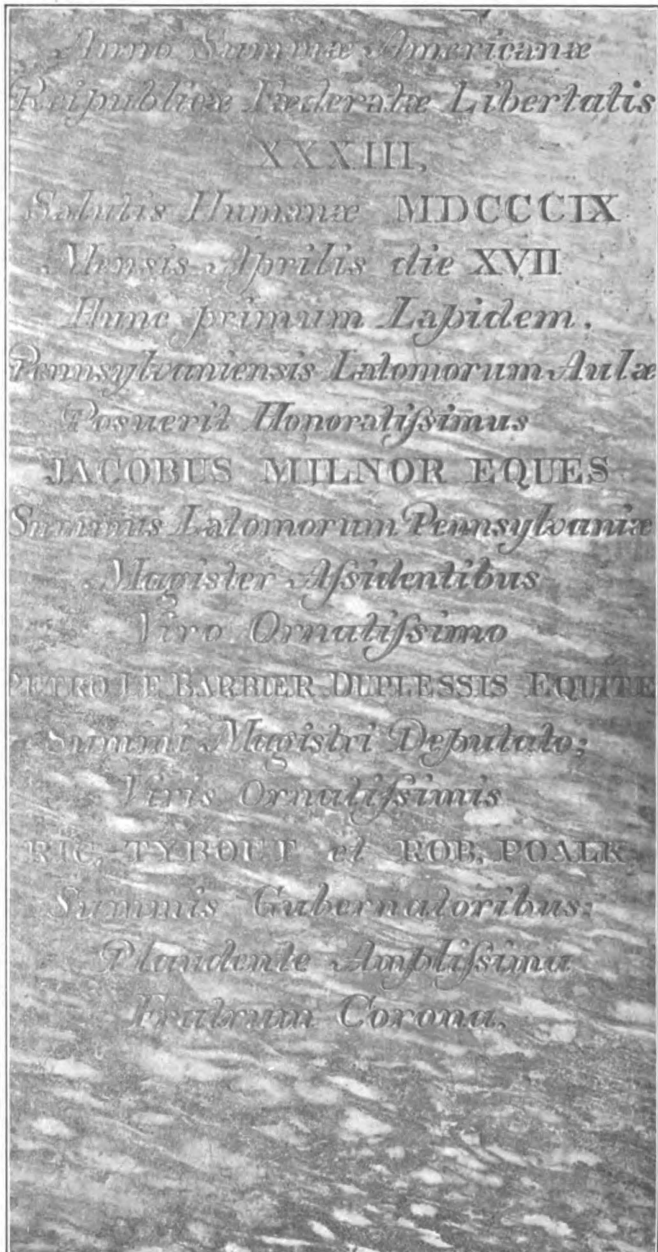 Anno Summæ Americanæ
Reipublicæ Fæderatæ Libertatis
XXXIII,
Salutis Humanæ MDCCCIX
Mensis Aprilis die XVII
Hunc primum Lapidem,
Pennsylvaniensis Latomorum Aulæ
Posuerit Honoratiſsimus
JACOBUS MILNOR EQUES
Summus Latomorum Pennsylvaniæ
Magister Aſsidentibus
Viro Ornatiſsimo
PETRO LE BARBIER DUPLESSIS EQUITE
Summi Magistri Deputato;
Viris Ornatiſsimis
RIC. TYBOUT et ROB. POALK
Summis Gubernatoribus;
Plaudente Ampliſsima
Fratrum Corona.